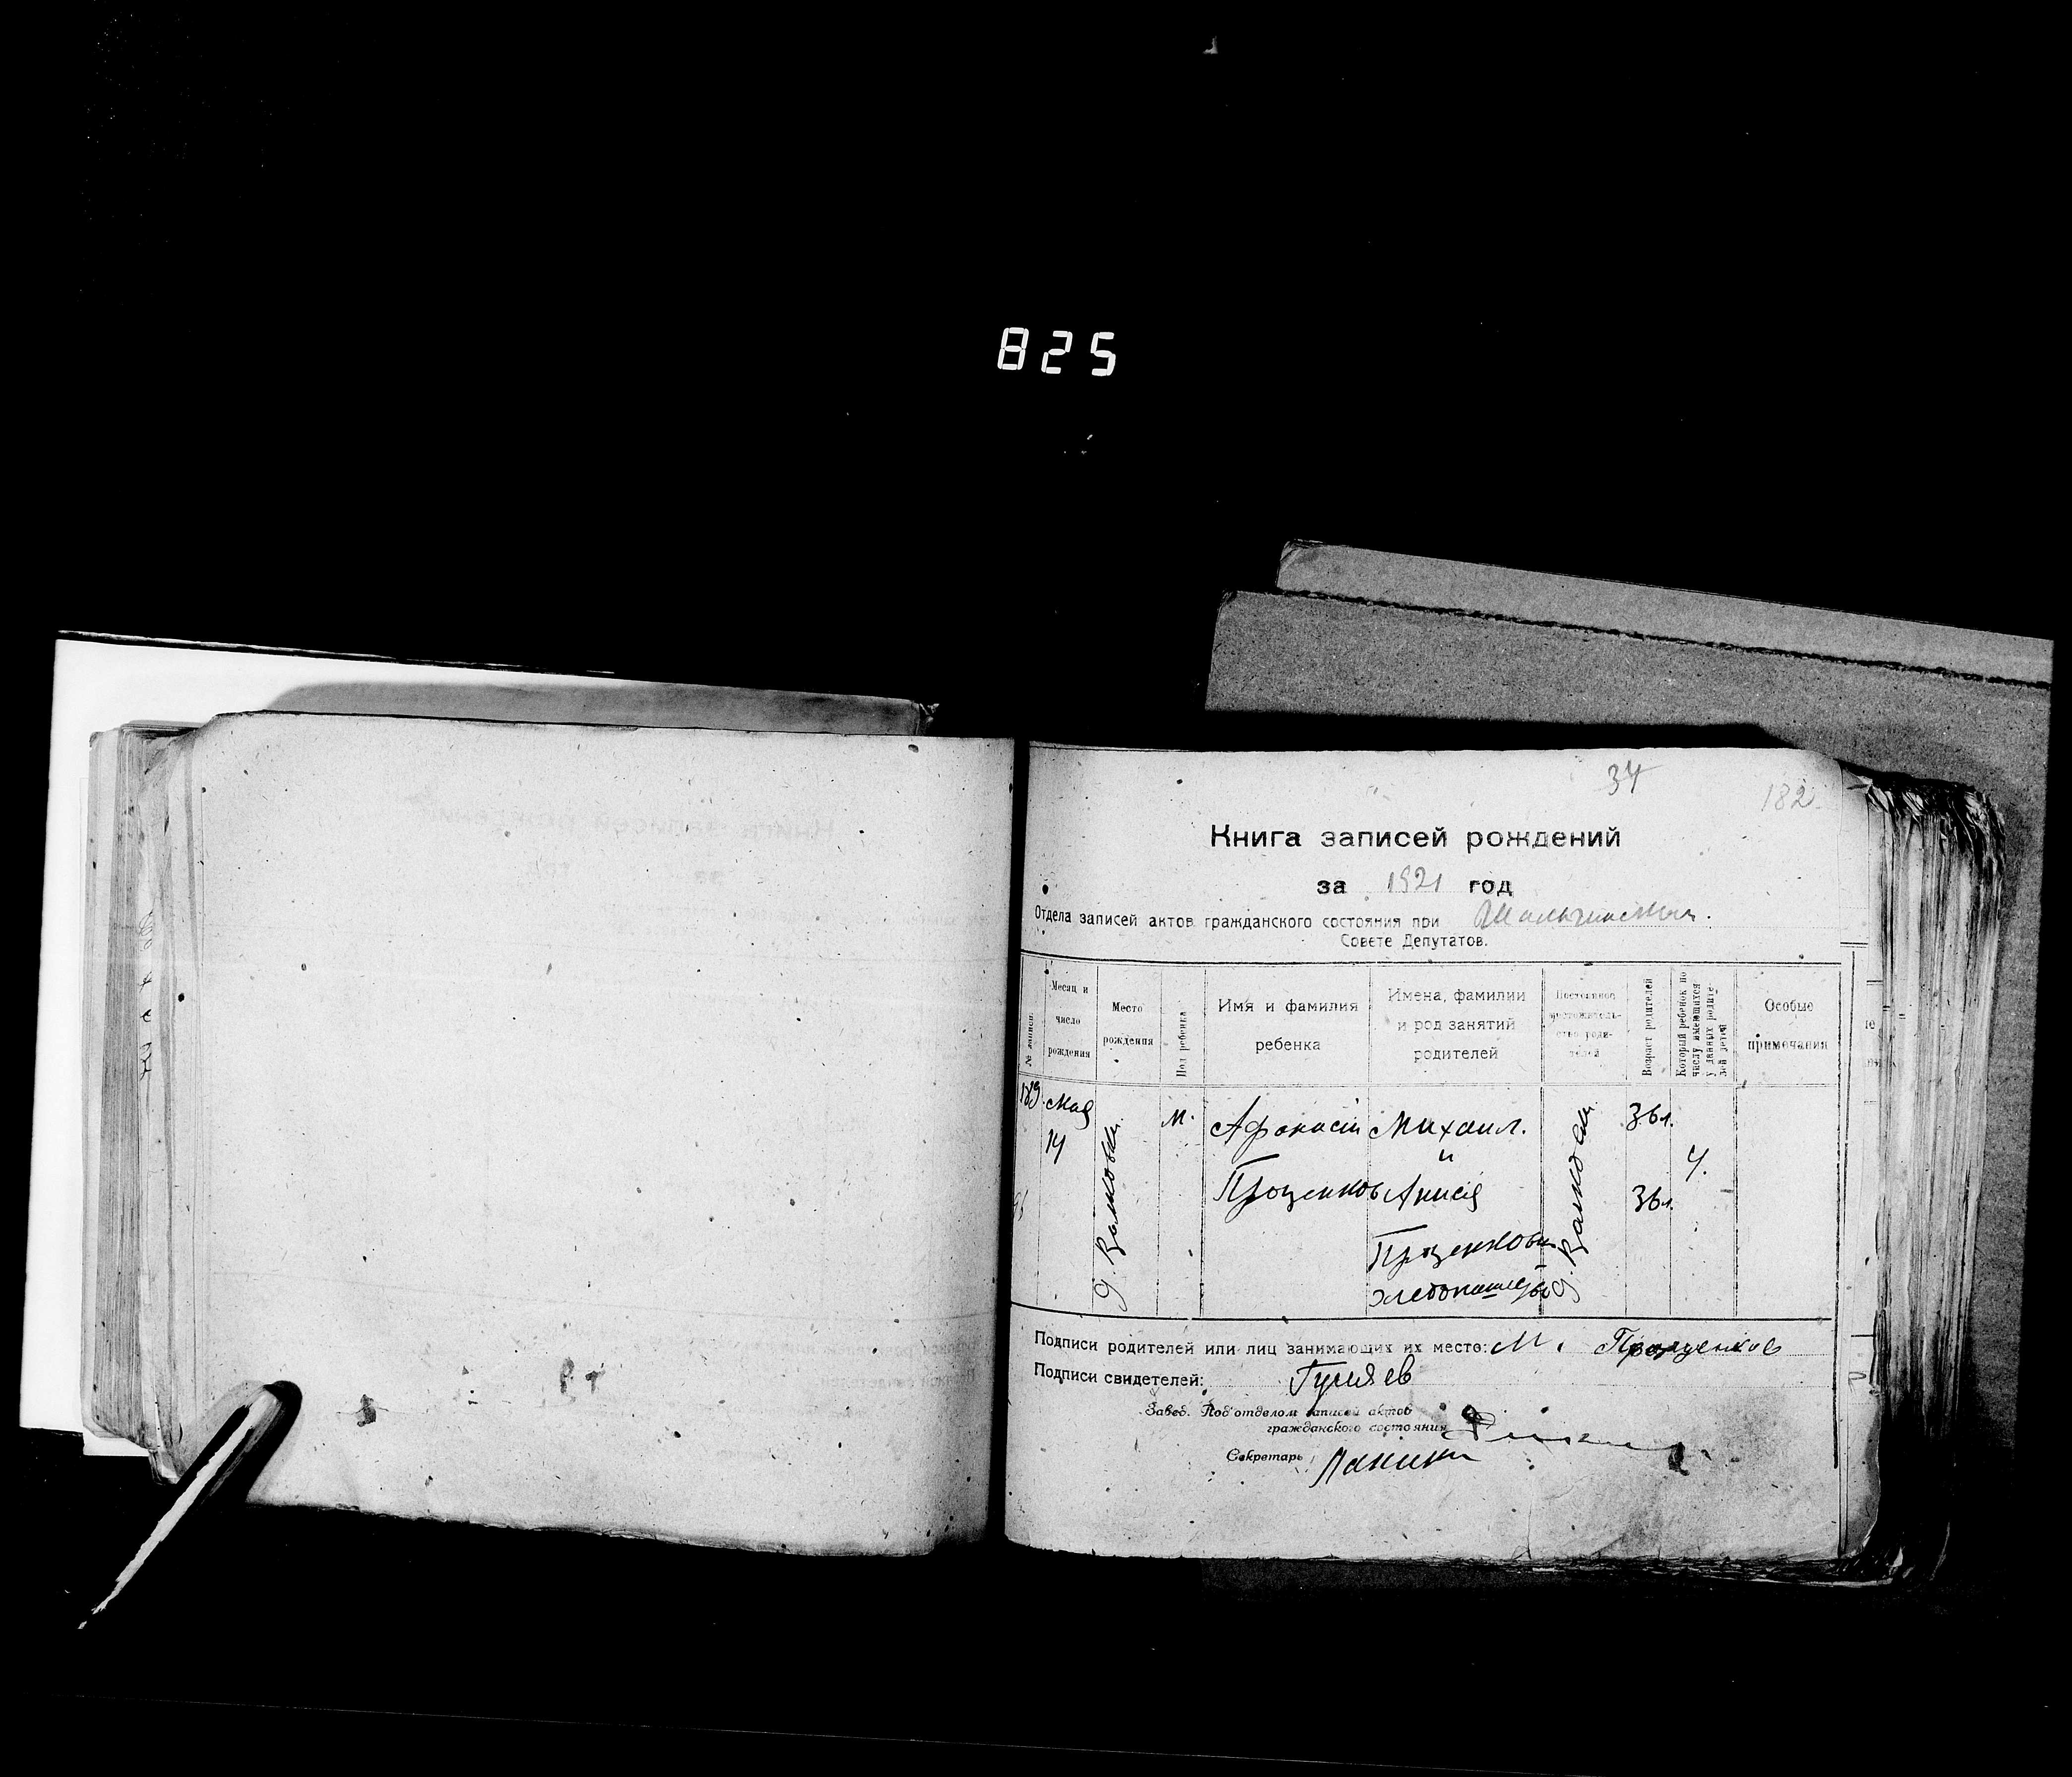 825
34
182
Книга записей рождений
за 1921 год
Отдела записей актов гражданского состояния при
Совете Депутатов.
№ записи.
Месяц и число рождения
Место рождения
Пол ребенка
Имя и фамилия ребенка
Имена, фамилии и род занятий родителей
Постоянное местожительство родителей
Возраст родителей
Который ребенок по числу имеющихся у данных родителей детей
Особые примечания
189.
Мая
14
м.
Афанасий
Проценков
Михаил.
и
Анисия
Проценковы
хлебопашество
36 л.
36 л.
4.
Подписи родителей или лиц занимающих их место: М. Проценков
Подписи свидетелей: Гуляев
Завед. Под'отделом записей актов
гражданского состояния
Секретарь